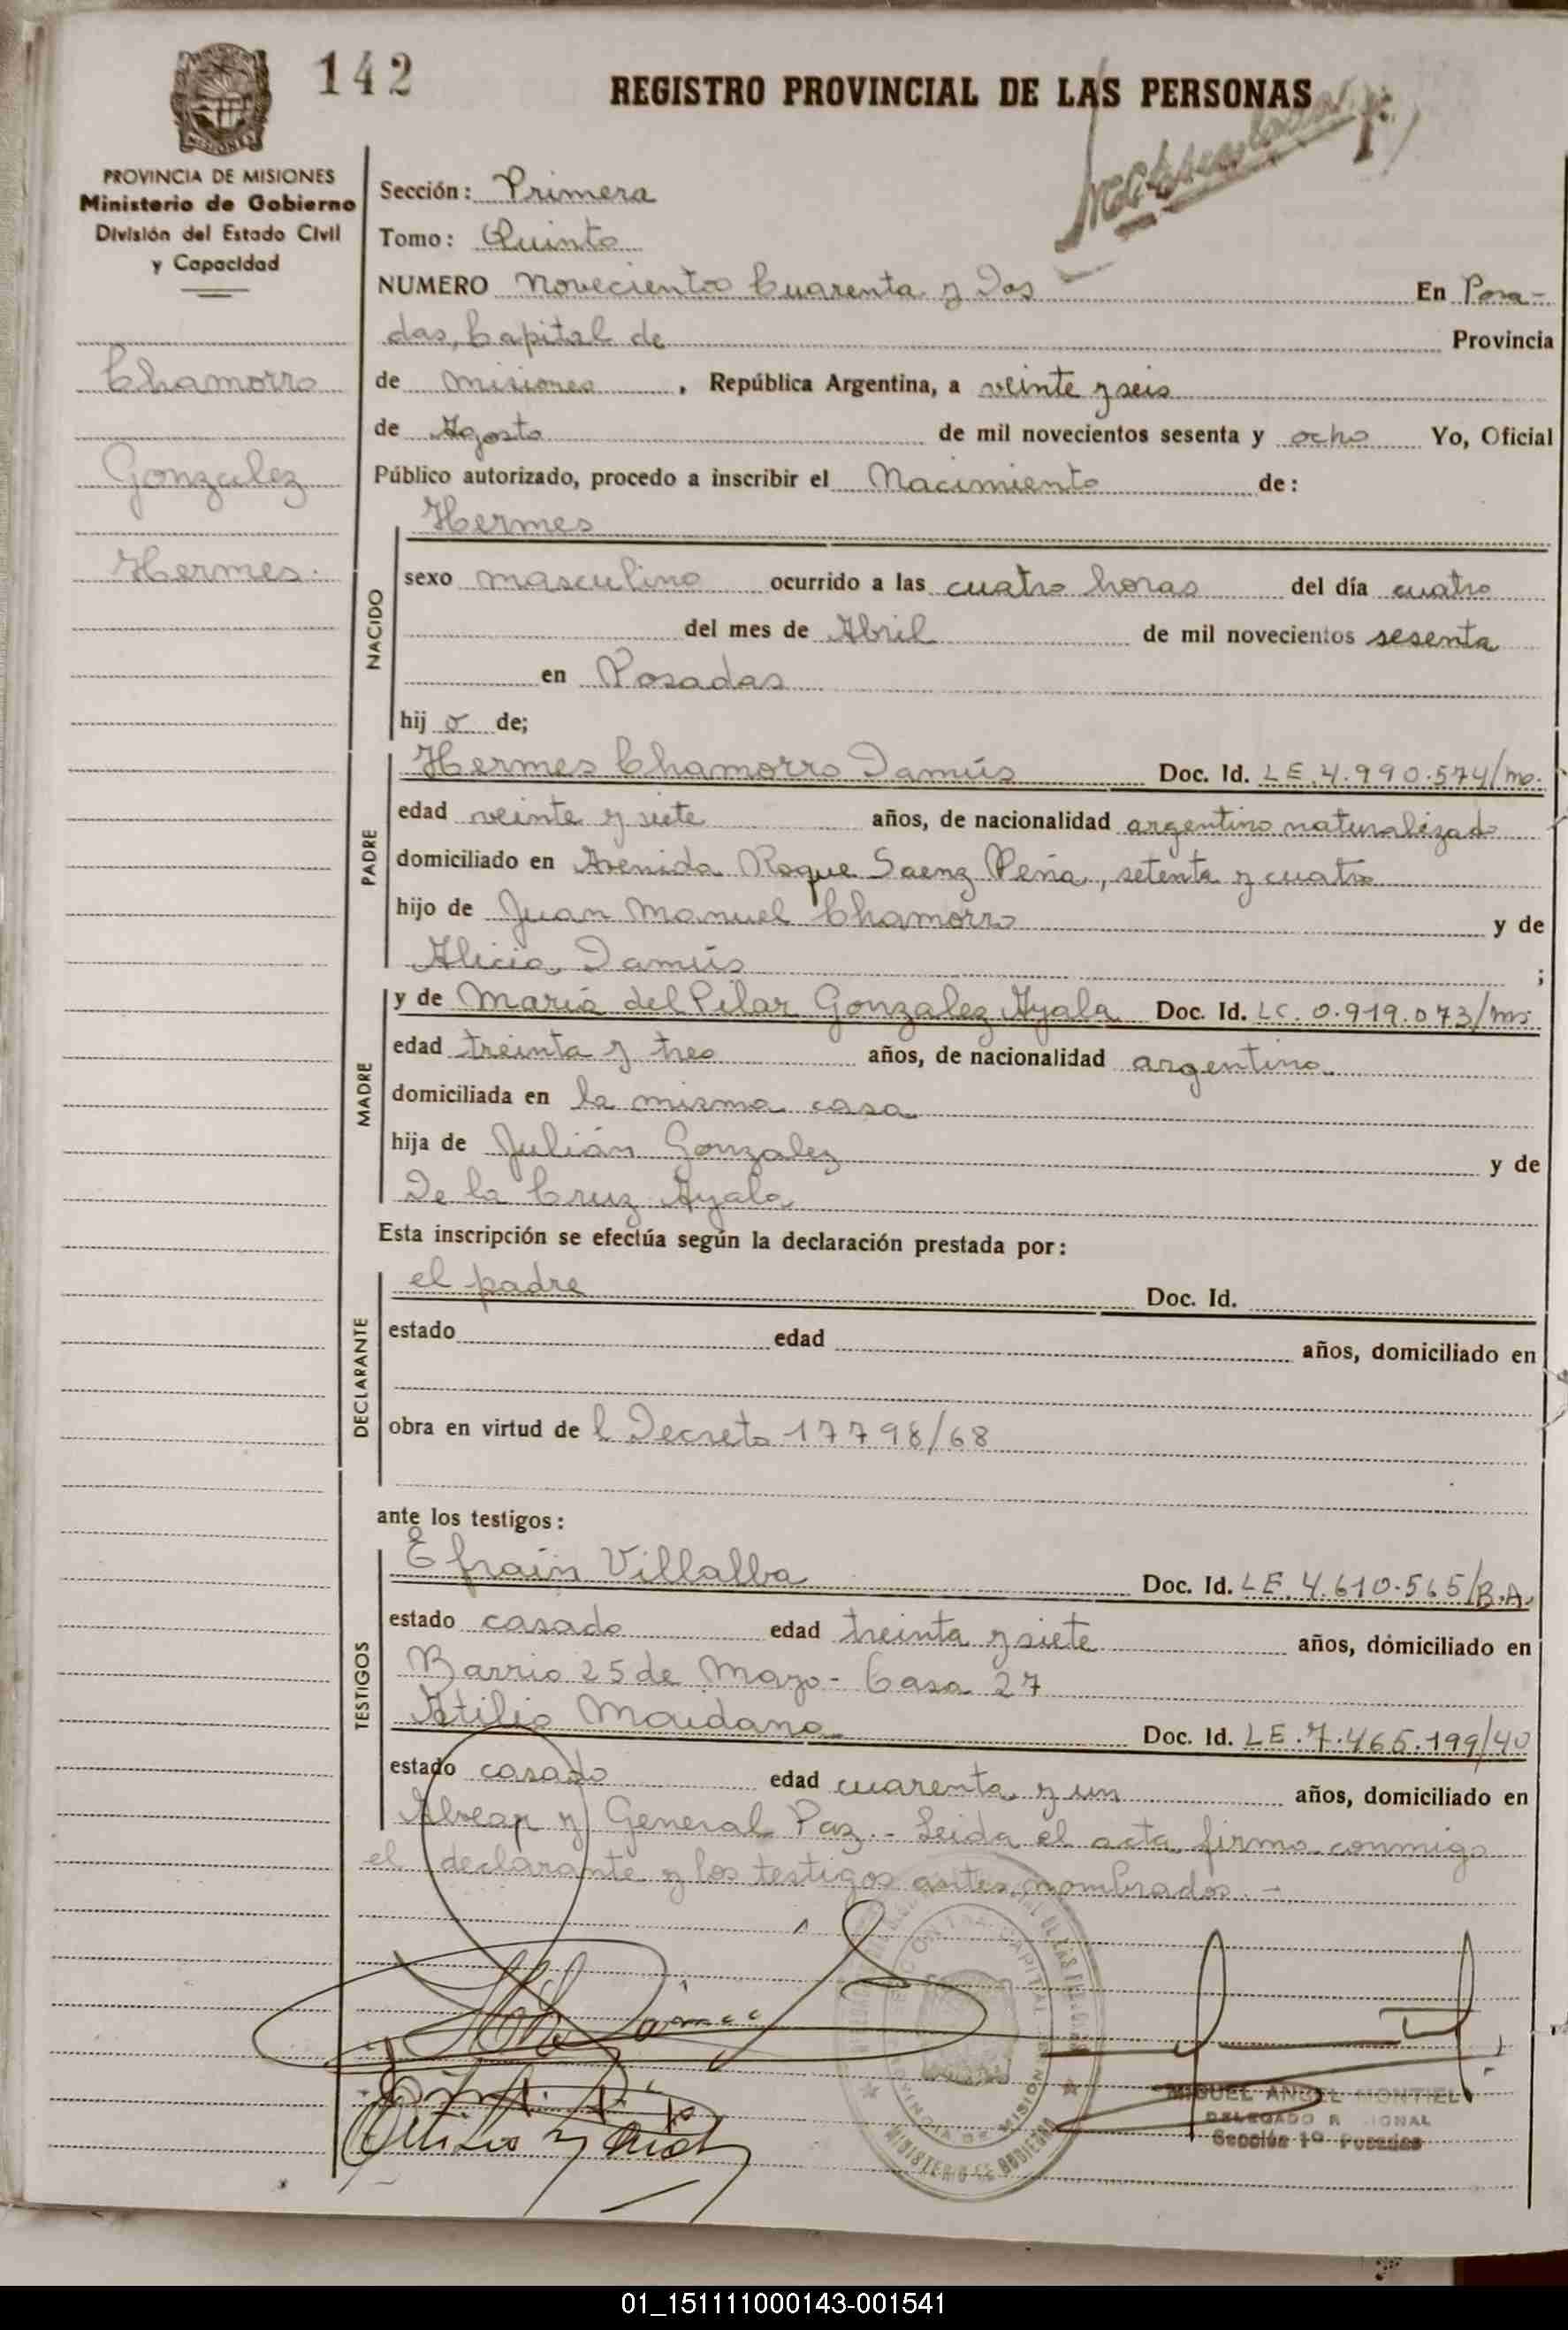 142
REGISTRO PROVINCIAL DE LAS PERSONAS
PROVINCIA DE MISIONES
Ministerio de Gobierno
División del Estado Civil
y Capacidad
Chamorro
Gonzalez
Hermes.
Sección: Primera
Tomo: Quinto
NUMERO Novecientos Cuarenta y Dos En Posa-
das, Capital de Provincia
de Misiones, República Argentina, a veinte y seis
de Agosto de mil novecientos sesenta y ocho Yo, Oficial
Público autorizado, procedo a inscribir el Nacimiento de:
NACIDO
Hermes
sexo masculino ocurrido a las cuatro horas del día cuatro
del mes de Abril de mil novecientos sesenta
en Posadas
hijo de;
PADRE
Hermes Chamorro Damús Doc. Id. LE.4.990.574/mo.
edad veinte y siete años, de nacionalidad argentino naturalizado
domiciliado en Avenida Roque Saenz Peña, setenta y cuatro
hijo de Juan Manuel Chamorro y de
Alicia Damús ;
MADRE
y de María del Pilar Gonzalez Ayala Doc. Id. LC. 0.919.073/ms.
edad treinta y tres años, de nacionalidad argentina
domiciliada en la misma casa
hija de Julián Gonzalez y de
De la Cruz Ayala
Esta inscripción se efectúa según la declaración prestada por:
DECLARANTE
el padre Doc. Id.
estado edad años, domiciliado en
obra en virtud de l Decreto 17798/68
ante los testigos:
TESTIGOS
Efraín Villalba Doc. Id. LE. 4.610.565/B.A.
estado casado edad treinta y siete años, domiciliado en
Barrio 25 de Mayo - Casa 27
Atilio Maidana Doc. Id. LE.7.465.199/40
estado casado edad cuarenta y un años, domiciliado en
Alvear y General Paz.- Leida el acta, firma conmigo
el declarante y los testigos antes nombrados.-
MIGUEL ANGEL MONTIEL
DELEGADO R IONAL
Sección 1º Posadas
MINISTERIO DE GOBIERNO
01_151111000143-001541